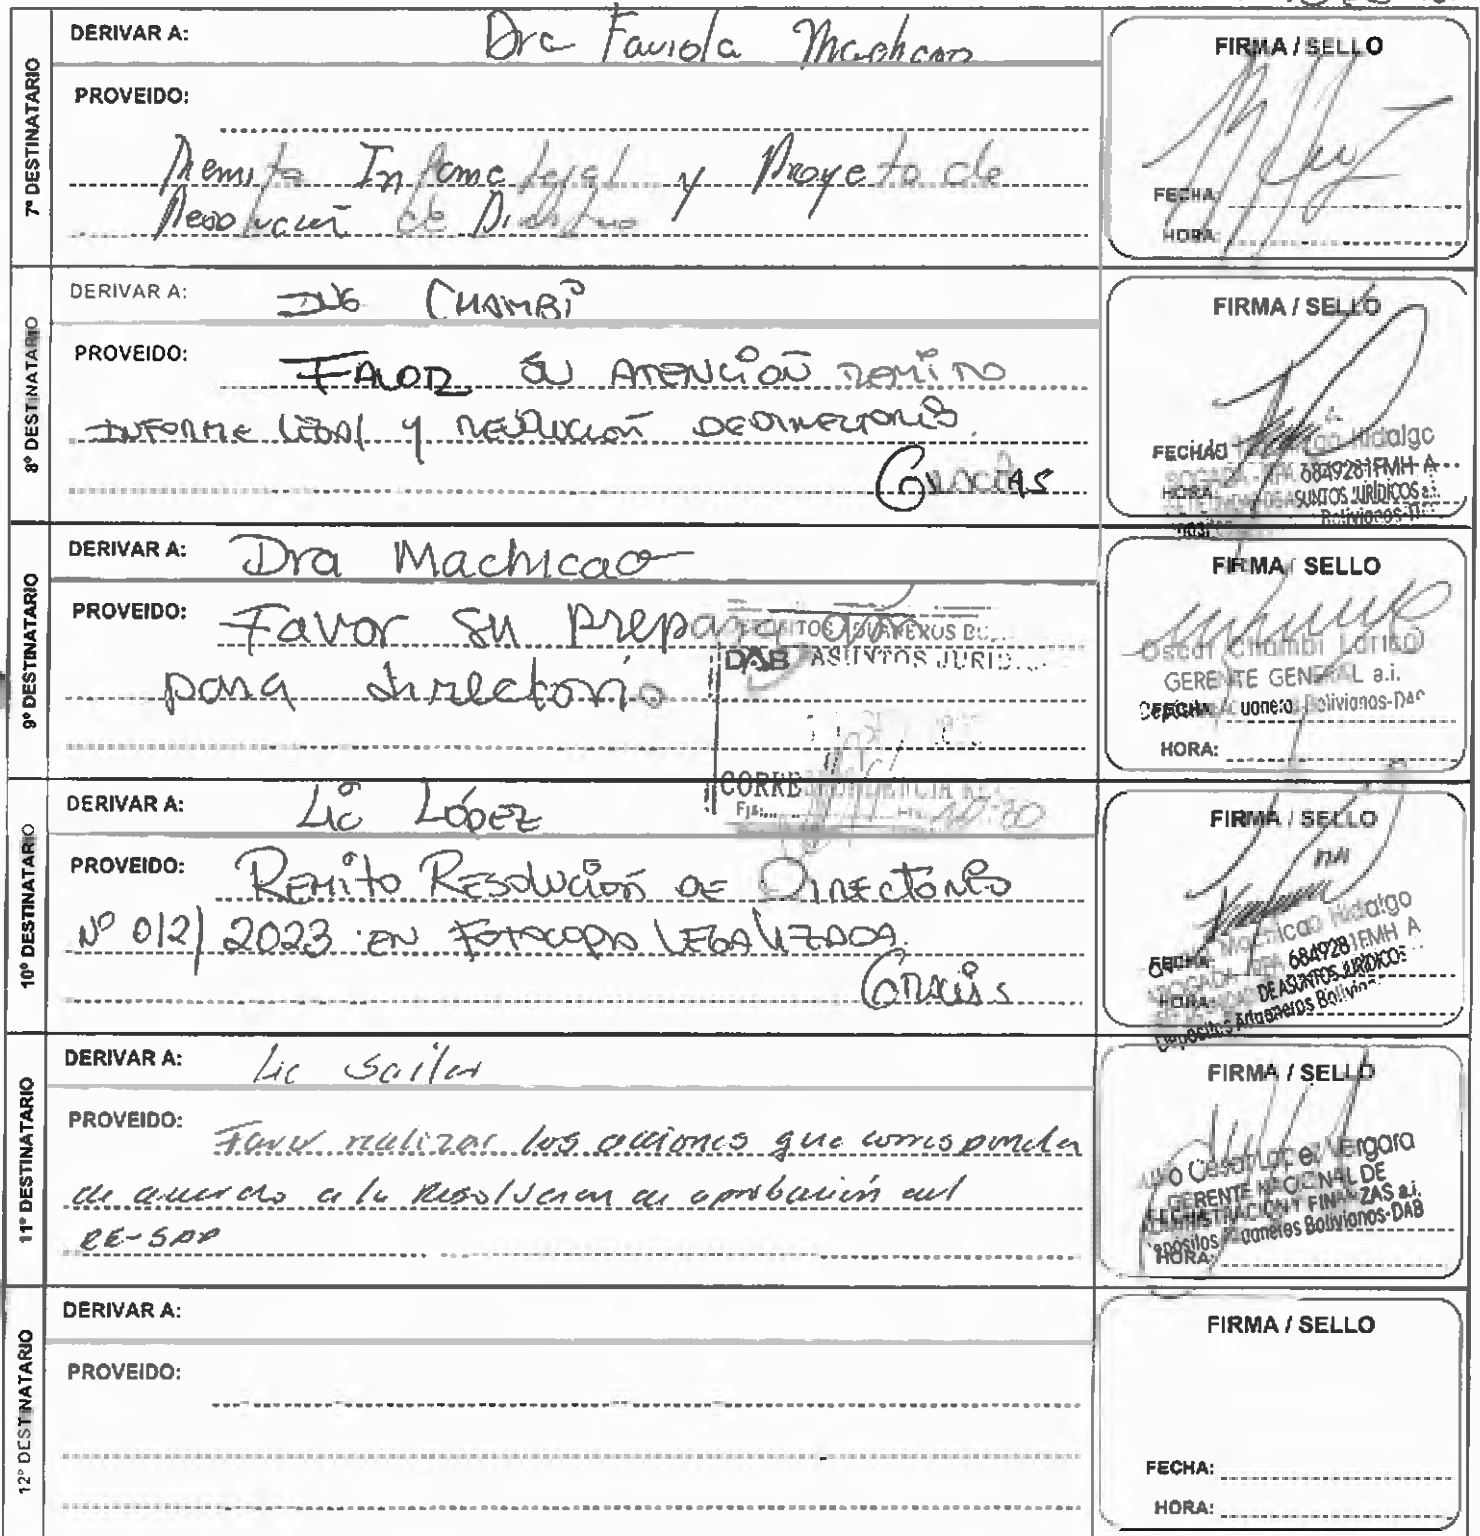 7º DESTINATARIO
DERIVAR A: Dra Faviola Machicao
FIRMA / SELLO
PROVEIDO:
Remito Informe Legal y Proyecto de
Resolución de Directorio
FECHA:
HORA:
8º DESTINATARIO
DERIVAR A: ING CHAMBI
FIRMA / SELLO
PROVEIDO: FAVOR SU ATENCIÓN REMITO
INFORME LEGAL Y RESOLUCIÓN DE DIRECTORIO.
GRACIAS
FECHA
Hidalgo
6849281FMH-A
HORA:
ASUNTOS JURÍDICOS a.i.
Bolivianos-
9º DESTINATARIO
DERIVAR A: Dra Machicao
FIRMA / SELLO
PROVEIDO: Favor su preparación
para directorio
ADUANEROS
DAB ASUNTOS JURID
CORRESPONDENCIA
Fjs:
Oscar Chambi Larico
GERENTE GENERAL a.i.
Aduaneros Bolivianos-DAB
FECHA:
HORA:
10º DESTINATARIO
DERIVAR A: Lic LÓPEZ
FIRMA / SELLO
PROVEIDO: REMITO RESOLUCIÓN DE DIRECTORIO
Nº 012/2023 EN FOTOCOPIA LEGALIZADA.
GRACIAS
Machicao Hidalgo
FECHA:
ABOGADA RPA 6849281FMH A
HORA:
DE ASUNTOS JURÍDICOS
Depósitos Aduaneros Bolivianos
11º DESTINATARIO
DERIVAR A: Lic Sailer
FIRMA / SELLO
PROVEIDO: Favor realizar las acciones que corresponda
de acuerdo a la Resolución de aprobación del
RE-SPP
Cesar Lopez Vergara
GERENTE NACIONAL DE
ADMINISTRACION Y FINANZAS a.i.
Depósitos Aduaneros Bolivianos-DAB
HORA:
12º DESTINATARIO
DERIVAR A:
FIRMA / SELLO
PROVEIDO:
FECHA:
HORA: